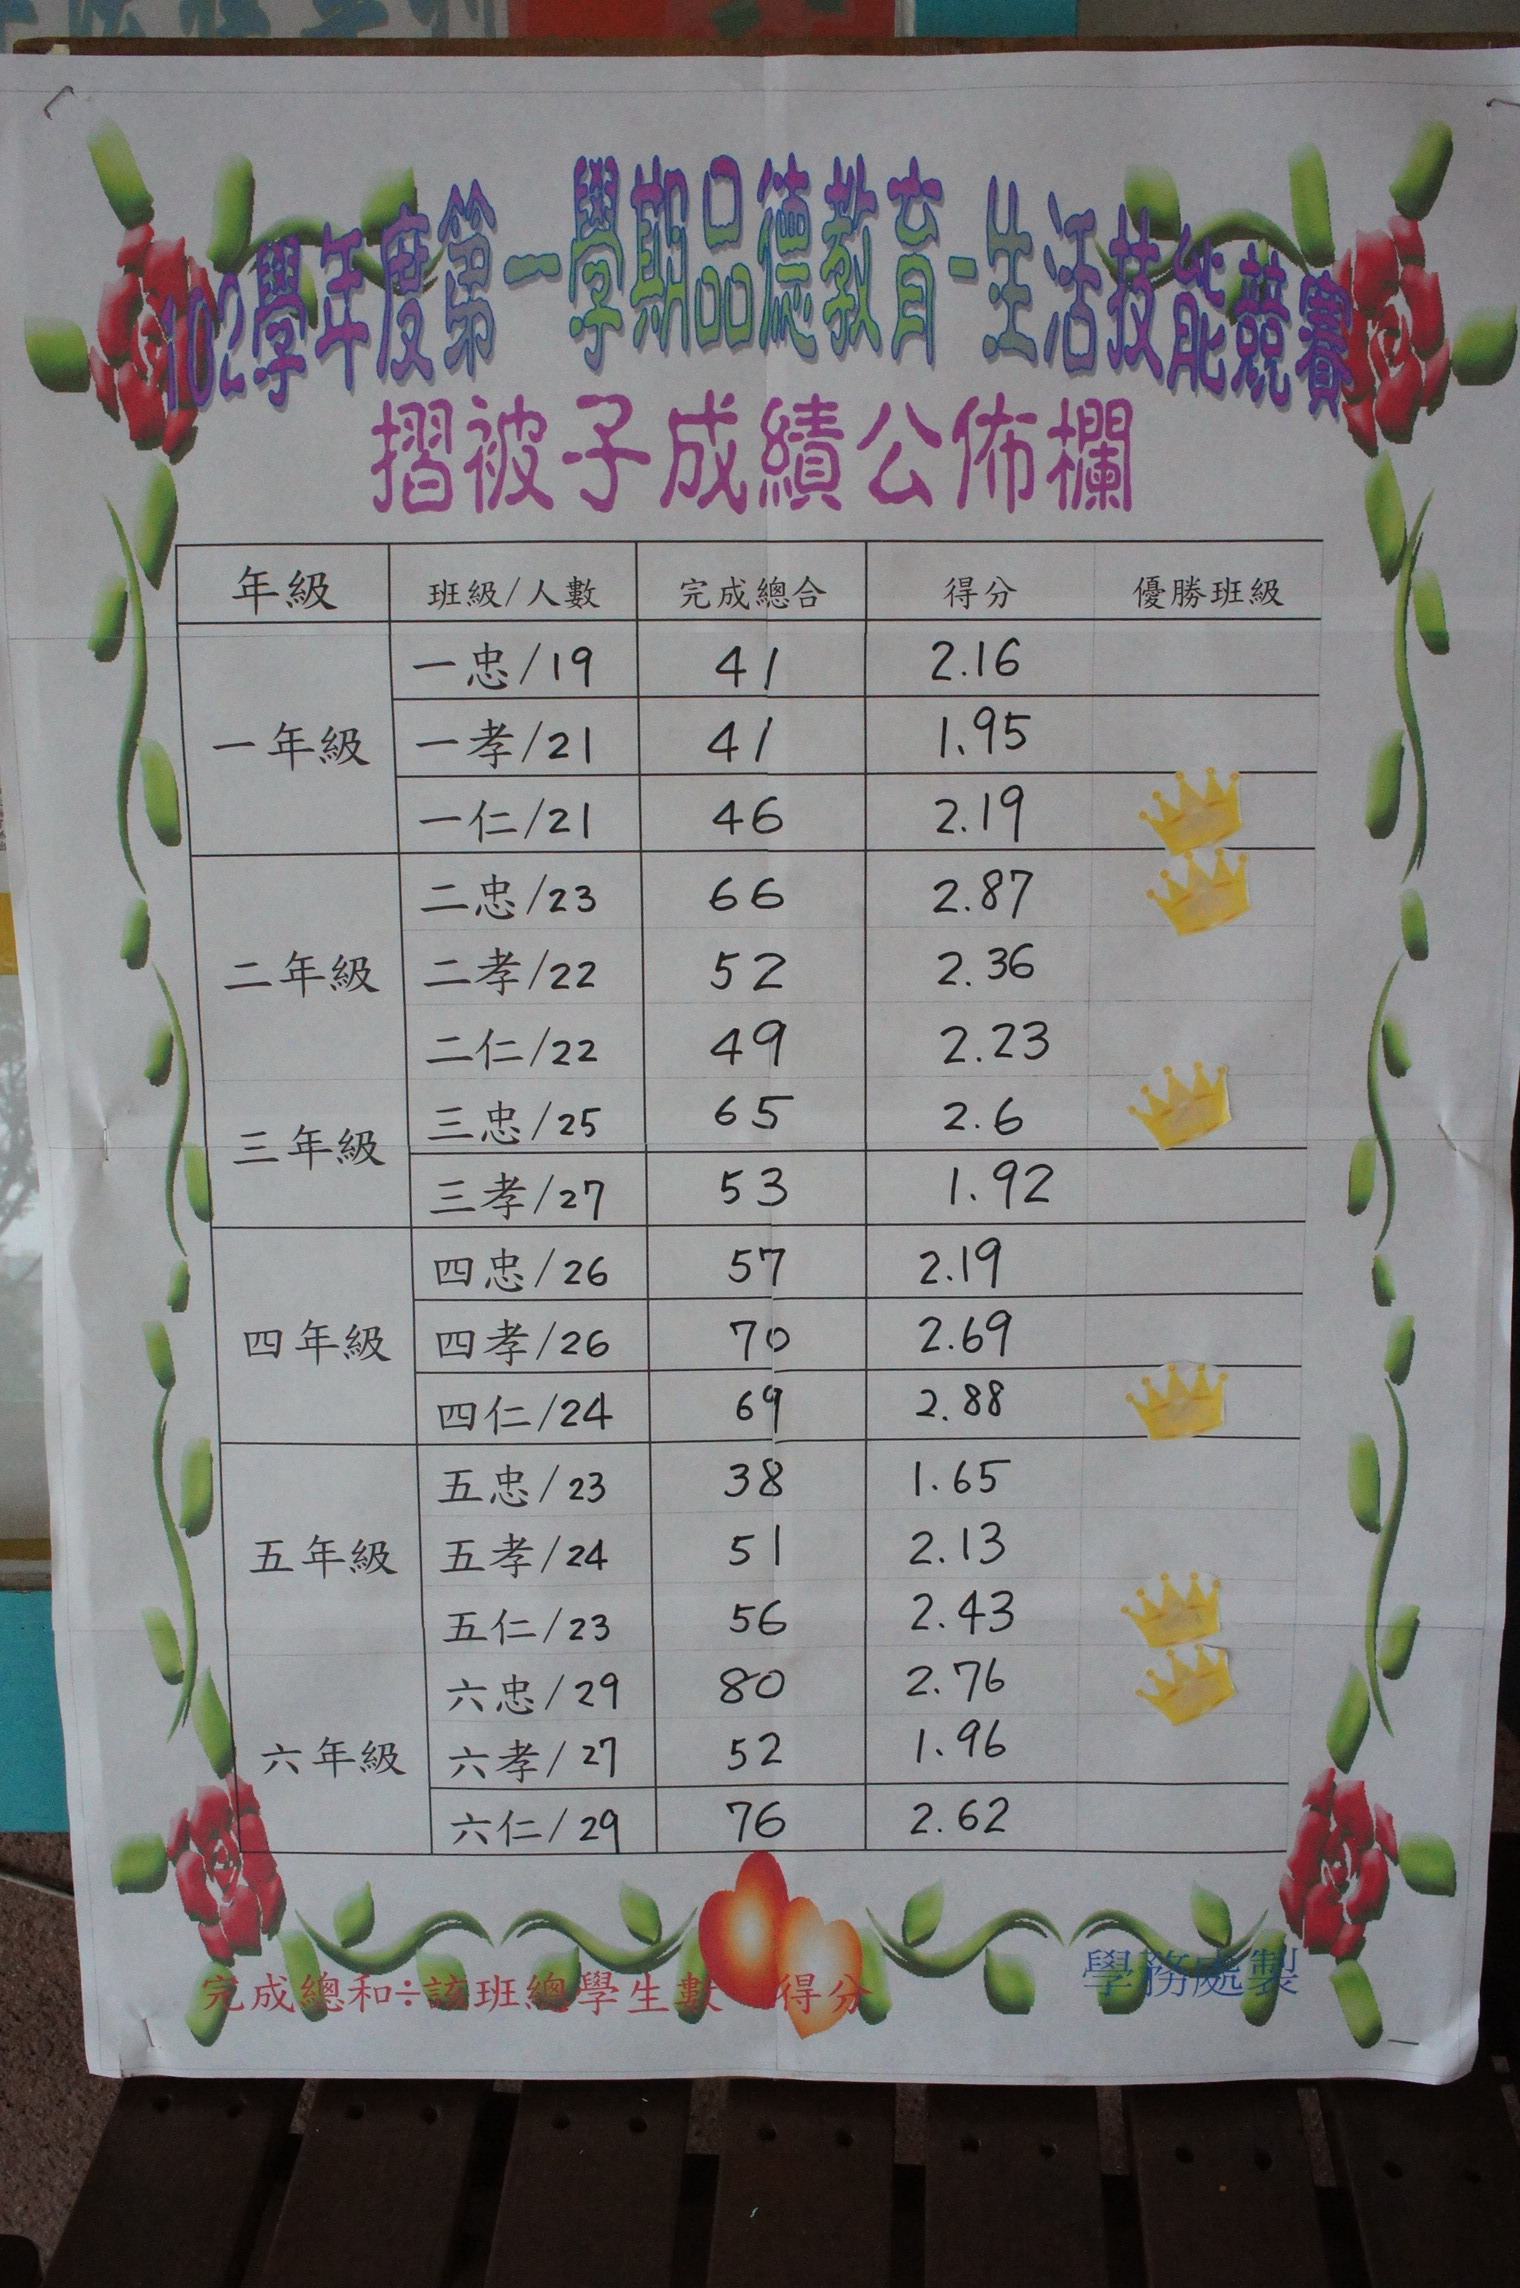 102學年度第一學期品德教育-生活技能競賽
摺被子成績公佈欄
年級 班級/人數 完成總合 得分 優勝班級
一年級
一忠/19 41 2.16
一孝/21 41 1.95
一仁/21 46 2.19
二年級
二忠/23 66 2.87
二孝/22 52 2.36
二仁/22 49 2.23
三年級
三忠/25 65 2.6
三孝/27 53 1.92
四年級
四忠/26 57 2.19
四孝/26 70 2.69
四仁/24 69 2.88
五年級
五忠/23 38 1.65
五孝/24 51 2.13
五仁/23 56 2.43
六年級
六忠/29 80 2.76
六孝/27 52 1.96
六仁/29 76 2.62
完成總和÷該班總學生數 得分
學務處製